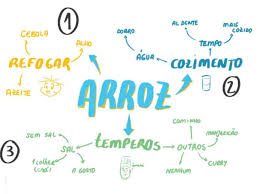 1
CEBOLA
ALHO
REFOGAR
AZEITE
DOBRO
ÁGUA
AL DENTE
MAIS
COZIDO
TEMPO
COZIMENTO
2
ARROZ
3
TEMPEROS
SEM SAL
SAL
1 COLHER
(CAFÉ)
A GOSTO
COMINHO
MANJERICÃO
OUTROS
CURRY
NENHUM